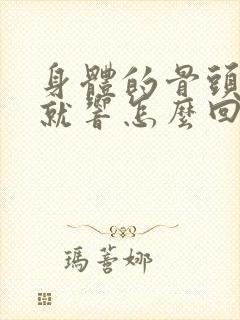 身體的骨頭
就響怎麼回
瑪蒼娜